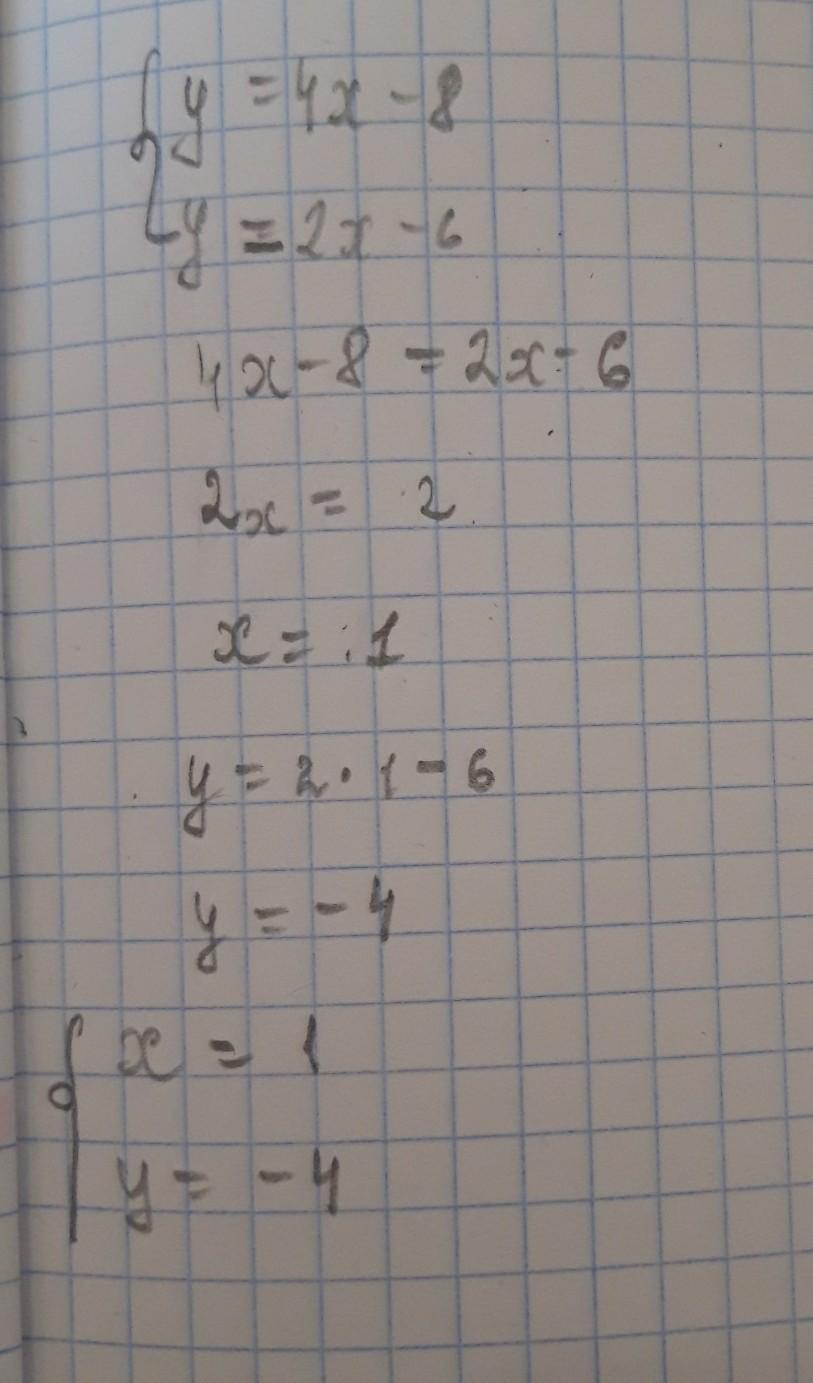 y = 4x - 8
y = 2x - 6
4x - 8 = 2x - 6
2x = 2
x = 1
y = 2 · 1 - 6
y = - 4
x = 1
y = - 4